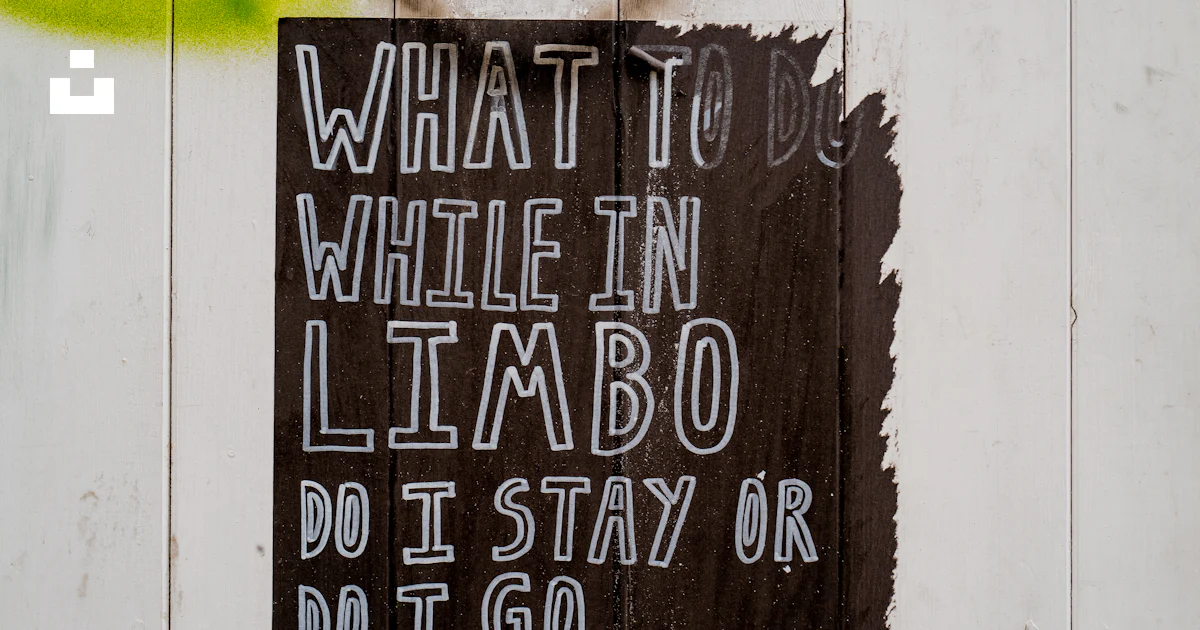 WHAT TO DO
WHILE IN
LIMBO
DO I STAY OR
DO I GO